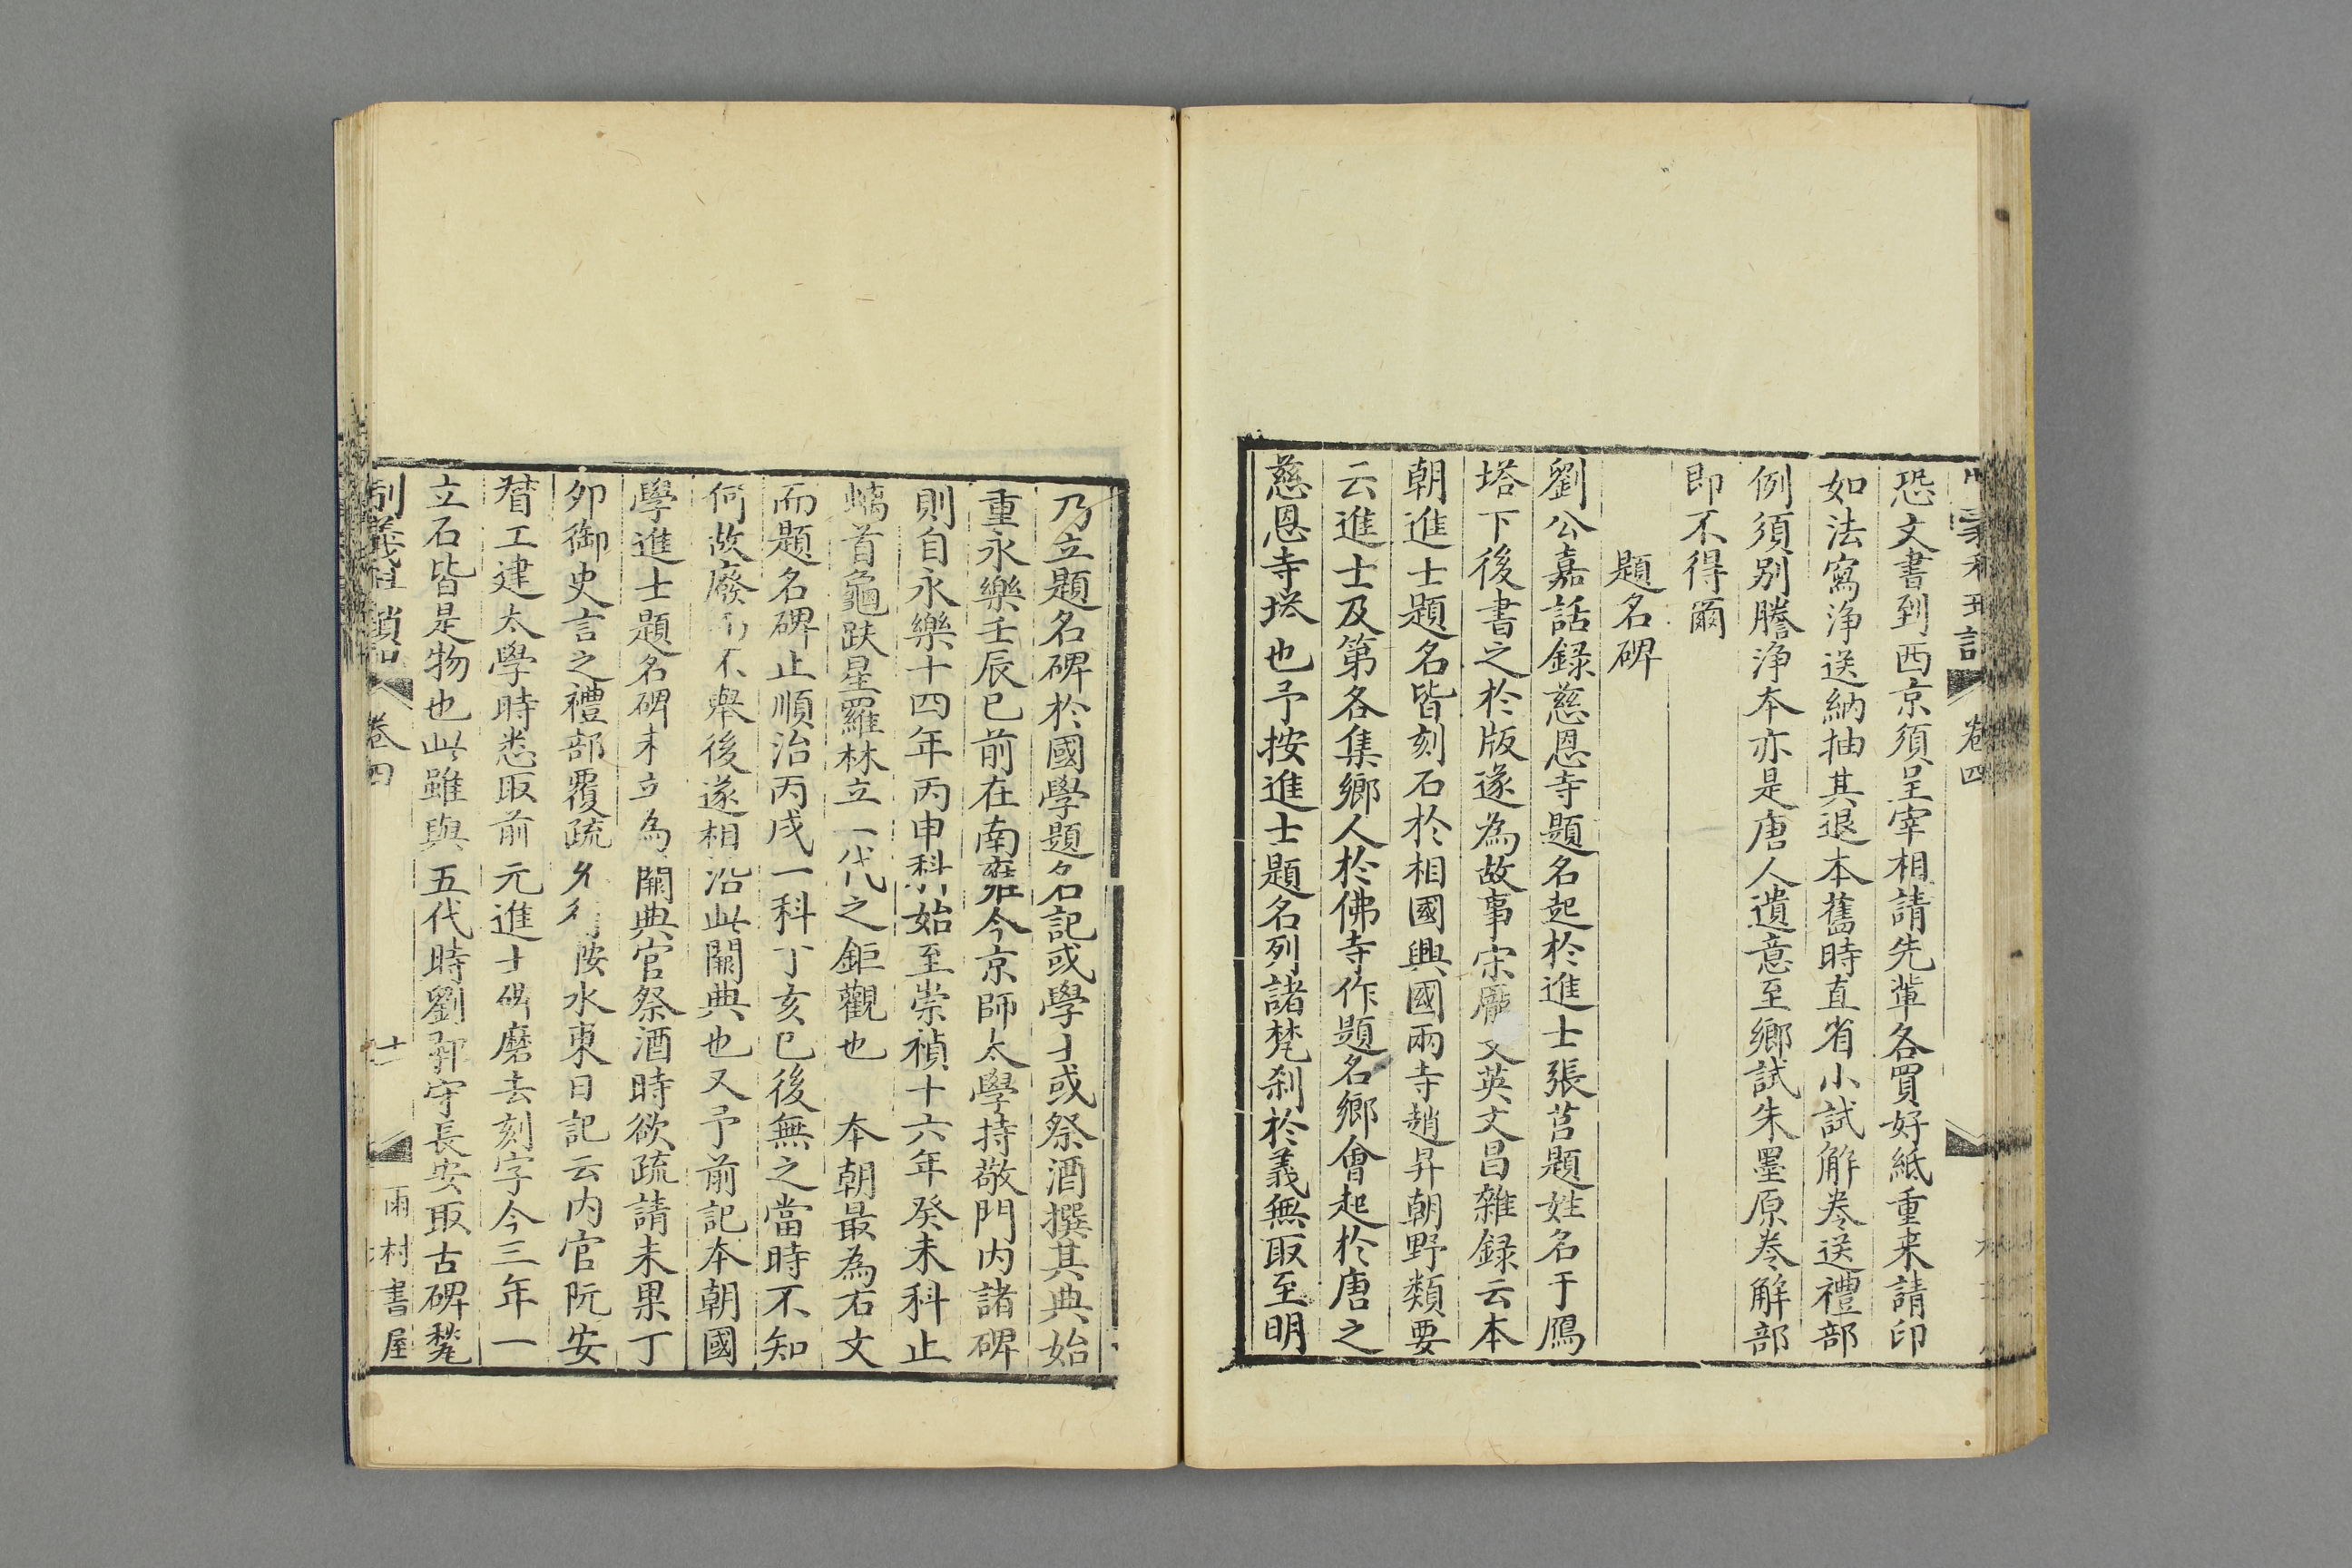 卷四
恐文書到西京須呈宰相請先輩各買好紙重来請印
如法寫淨送納抽其退本舊時直省小試解卷送禮部
例須别謄淨本亦是唐人遺意至鄉試朱墨原卷解部
即不得爾
題名碑
劉公嘉話録慈恩寺題名起於進士張莒題姓名于鴈
塔下後書之於版遂為故事宋龐文英文昌雜録云本
朝進士題名皆刻石於相國興國兩寺趙昇朝野類要
云進士及第各集鄉人於佛寺作題名鄉會起於唐之
慈恩寺塔也予按進士題名列諸梵刹於義無取至明
乃立題名碑於國學題名記或學士或祭酒撰其典始
重永樂壬辰已前在南雍今京師太學持敬門内諸碑
則自永樂十四年丙申科始至崇禎十六年癸未科止
螭首龜趺星羅林立一代之鉅觀也 本朝最為右文
而題名碑止順治丙戌一科丁亥已後無之當時不知
何故廢而不舉後遂相沿此闕典也又予前記本朝國
學進士題名碑未立為闕典官祭酒時欲疏請未果丁
夘御史言之禮部覆疏允行按水東日記云内官阮安
督工建太學時悉取前元進士碑磨去刻字今三年一
立石皆是物也此雖與五代時劉鄩守長安取古碑甃
制義科瑣記 卷四 十二 雨村書屋